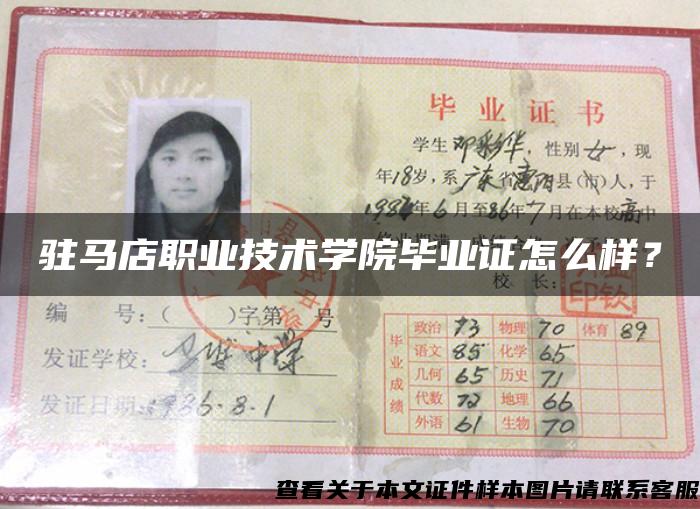 毕业证书
学生邓彩华，性别女，现
年18岁，系广东省惠阳县（市）人，于
1984年6月至86年7月在本校高中
驻马店职业技术学院毕业证怎么样？
校长：
编 号：（ ）字第 号
发证学校：
中学
发证日期：1986.8.1
毕业成绩
政治 73 物理 70 体育 89
语文 85 化学 65
几何 65 历史 71
代数 72 地理 66
外语 61 生物 70
查看关于本文证件样本图片请联系客服